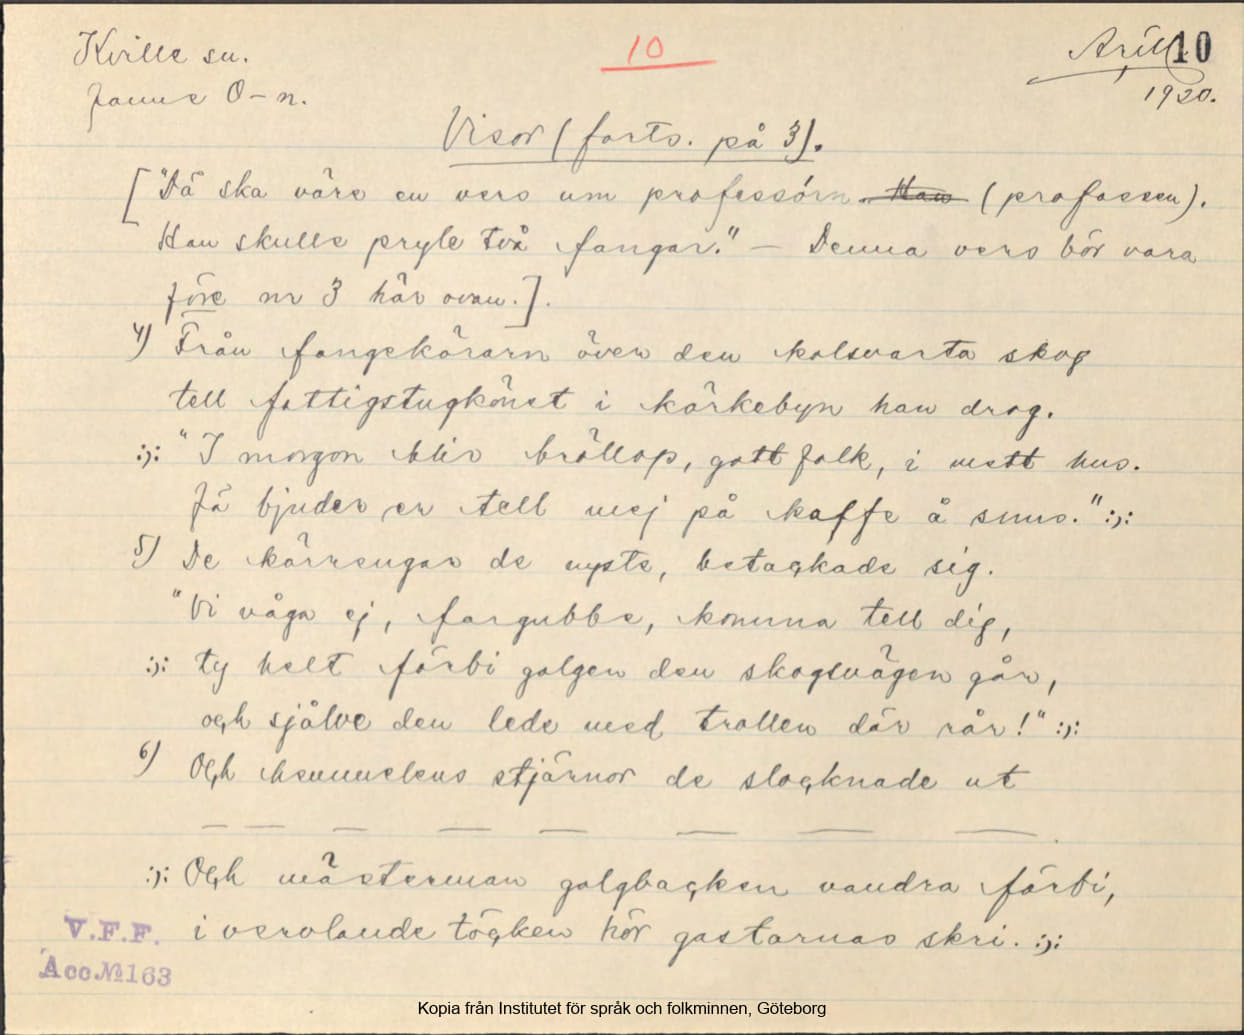 Kville sn.
10
April 10
Janne O-n.
1920.
Visor (forts. på 3).
["Dä ska våre en vers um professórn. Han (profossen).
Han skulle pryle två fangar." — Denna vers bör vara
före nr 3 här ovan.].
4) Från fangekörarn över den kolsvarta skog
tell fattigstugkönet i körkebyn han drog.
:,: "I morgon blir bröllop, gott folk, i mett hus.
Jä bjuder er tell mej på kaffe å snus." :,:
5) De kärrengar de nyste, betackade sig.
"Vi våga ej, fargubbe, komma tell dig,
:,: ty helt förbi galgen den skogsvägen går,
och själve den lede med trollen där rår!" :,:
6) Och hemmelens stjärnor de slocknade ut
— — — — — — — —.
:,: Och mästerman galgbacken vandra förbi,
i vervlande töcken hör gastarnas skri. :,:
V.F.F.
Acc № 163
Kopia från Institutet för språk och folkminnen, Göteborg